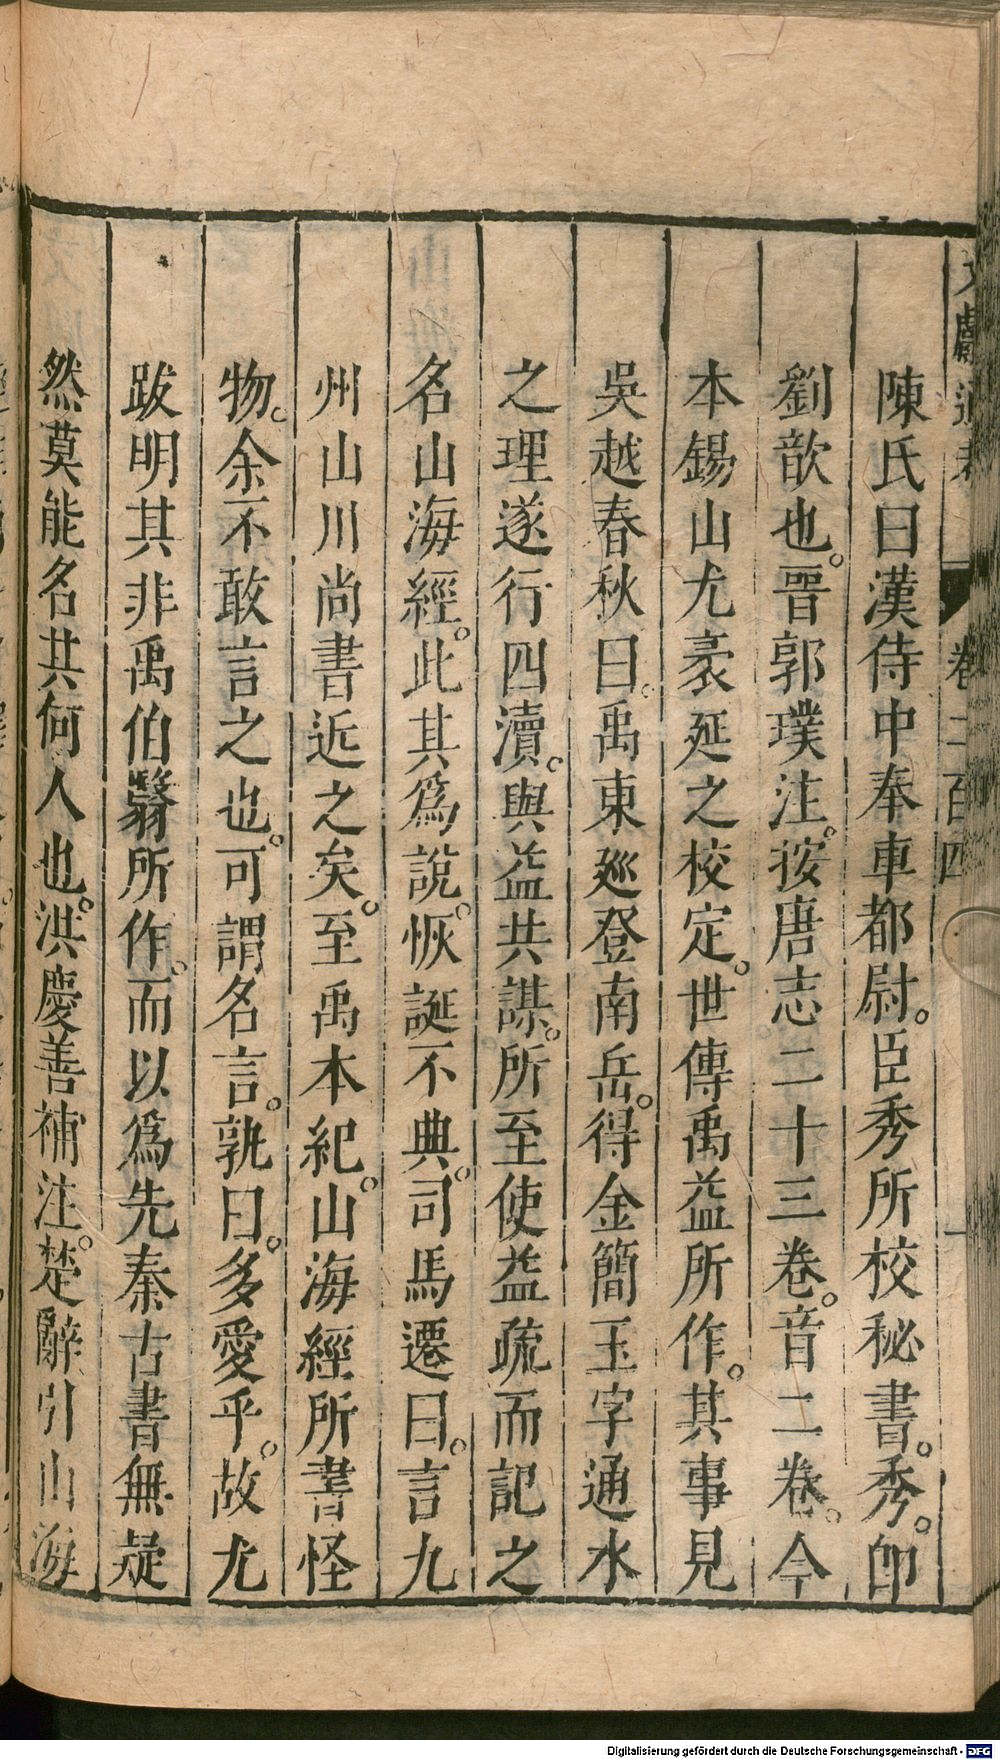 文獻通考 卷二百四 一
陳氏曰漢侍中奉車都尉。臣秀所校秘書。秀。卽
劉歆也。晉郭璞注。按唐志二十三卷。音二卷。今
本錫山尤袤延之校定。世傳禹益所作。其事見
吳越春秋曰。禹東廵登南岳。得金簡玉字通水
之理遂行四瀆。與益共謀。所至使益疏而記之
名山海經。此其爲說。恢誕不典。司馬遷曰。言九
州山川尚書近之矣。至禹本紀。山海經所書怪
物。余不敢言之也。可謂名言。孰曰。多愛乎。故尤
跋明其非禹伯翳所作。而以爲先秦古書無疑
然莫能名其何人也。洪慶善補注。楚辭引山海
Digitalisierung gefördert durch die Deutsche Forschungsgemeinschaft - DFG